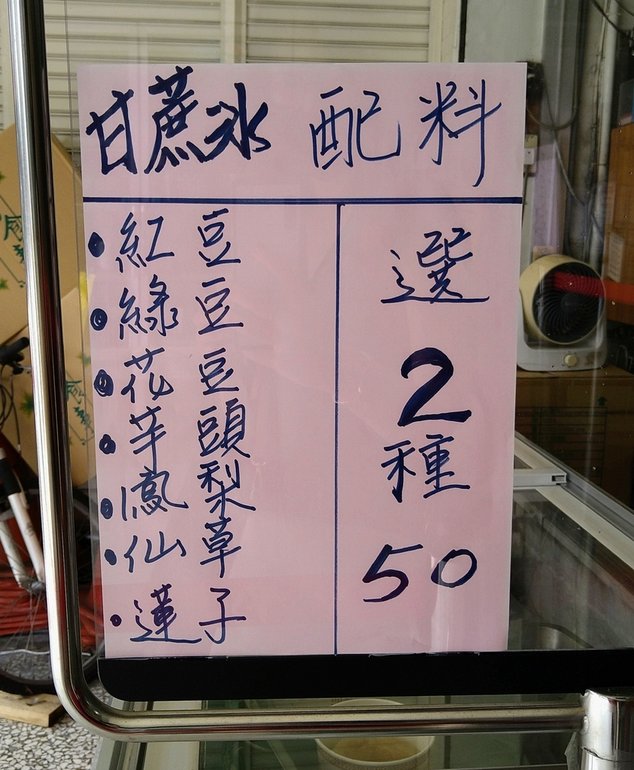 甘蔗冰 配料
紅豆
綠豆
花豆
芋頭
鳳梨
仙草
蓮子
選
2
種
50